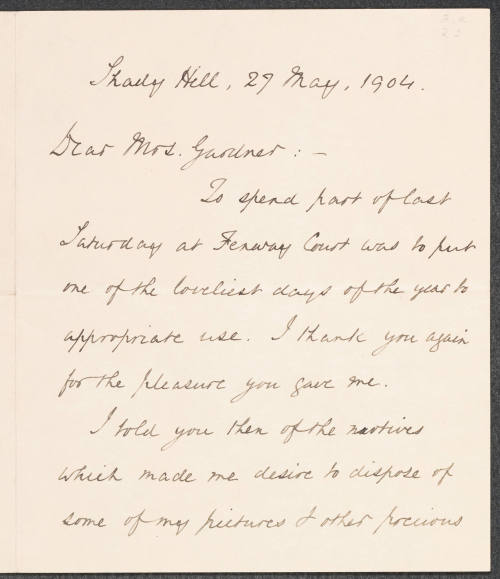 Shady Hill, 27 May, 1904.
Dear Mrs. Gardner : –
To spend part of last
Saturday at Fenway Court was to put
one of the loveliest days of the year to
appropriate use. I thank you again
for the pleasure you gave me.
I told you then of the motives
which made me desire to dispose of
some of my pictures & other precious